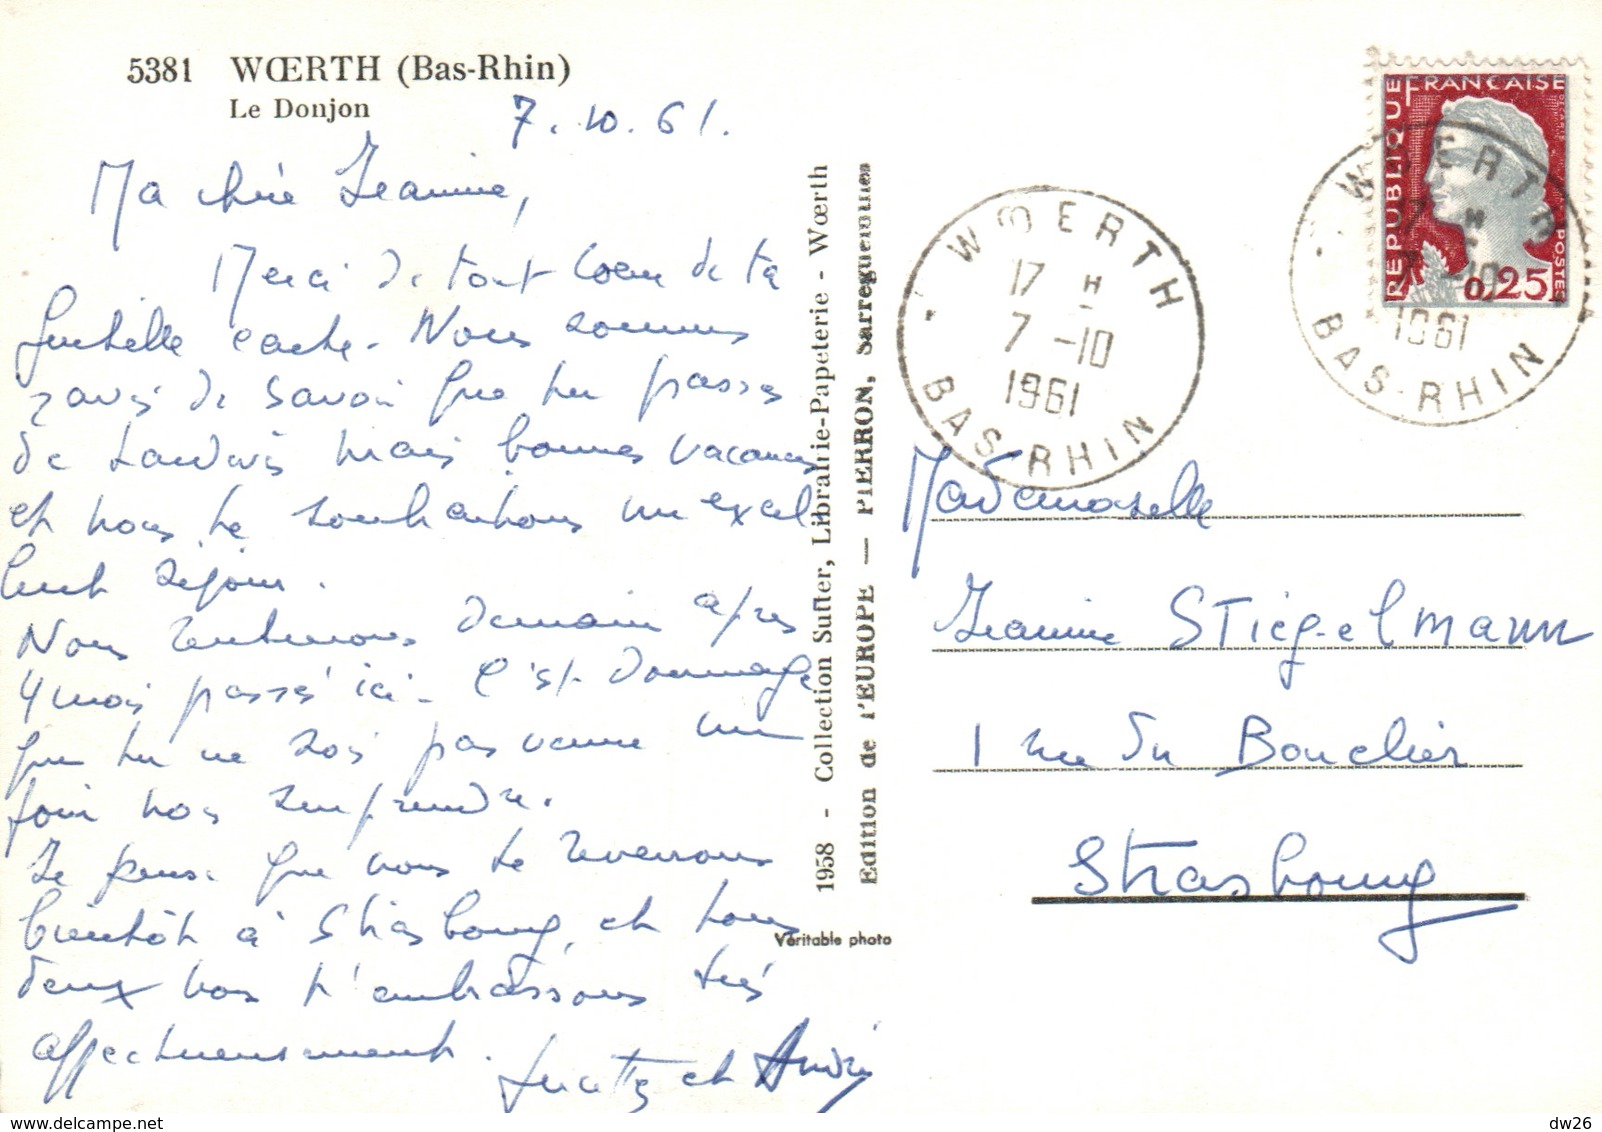 5381 WŒRTH (Bas-Rhin)
Le Donjon
7.10.61.
Ma chère Jeannine,
Merci de tout coeur de ta
gentille carte. Nous sommes
ravis de savoir que tu passes
de mais bonnes vacances
et nous te souhaitons un excel
lent séjour.
Nous rentrerons demain après
4 mois passés ici. C'est dommage
que tu ne sois pas venue un
jour nous surprendre.
Je pense que nous te reverrons
bientôt à Strasbourg, et tous
deux nous t'embrassons très
affectueusement.
et André
1958 - Collection Sutter, Librairie-Papeterie - Wœrth
Edition de l'EUROPE — PIERRON, Sarreguemines
Véritable photo
RÉPUBLIQUE FRANÇAISE
POSTES
0,25
WOERTH
17 H
7 -10
1961
BAS-RHIN
WOERTH
17 H
7 -10
1961
BAS-RHIN
Mademoiselle
Jeannine STiegelmann
1 rue du Bouclier
Strasbourg
dw26